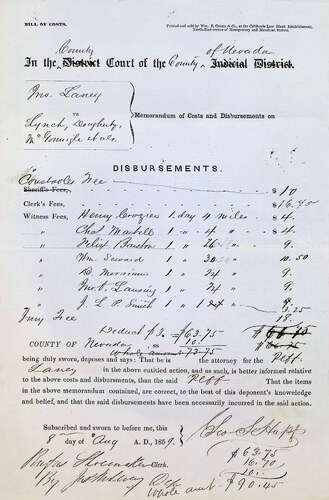 BILL OF COSTS.
Printed and sold by Wm. B. Cooke & Co., at the California Law Blank Establishment,
North-East corner of Montgomery and Merchant Streets.
County of Nevada
In the District Court of the County Judicial District.
Jno. Laney
vs
Lynch, Dougherty,
McGonigle et als.
Memorandum of Costs and Disbursements on
DISBURSEMENTS.
Constables Fee $ 10
Sheriff's Fees,
Clerk's Fees, $ 16.70
Witness Fees, Henry Crozier 1 day 4 miles $ 4.
" Chas Marbell 1 " 4 " 4.
" Felix 1 " 26 " 9.
" Wm. Seward 1 " 30 10.50
" D. Morrison 1 " 24 " 9.
" Jno. A. Lansing 1 " 24 " 9.
" J. L. P. Smith 1 " 24 " 8.
5.25
Jury Fee 18.
Deduct $3. = $63.75
COUNTY OF Nevada, ss
Whole amount 73.75
being duly sworn, deposes and says: That he is the attorney for the Peff
Laney in the above entitled action, and as such, is better informed relative
to the above costs and disbursements, than the said Peff That the items
in the above memorandum contained, are correct, to the best of this deponent's knowledge
and belief, and that the said disbursements have been necessarily incurred in the said action.
Subscribed and sworn to before me, this
8 day of Aug A. D., 1859.
Geo S Hupp
Rufus Shoemaker Clerk.
By Dep
$63.75
16.70
10.
Whole amt $90.45